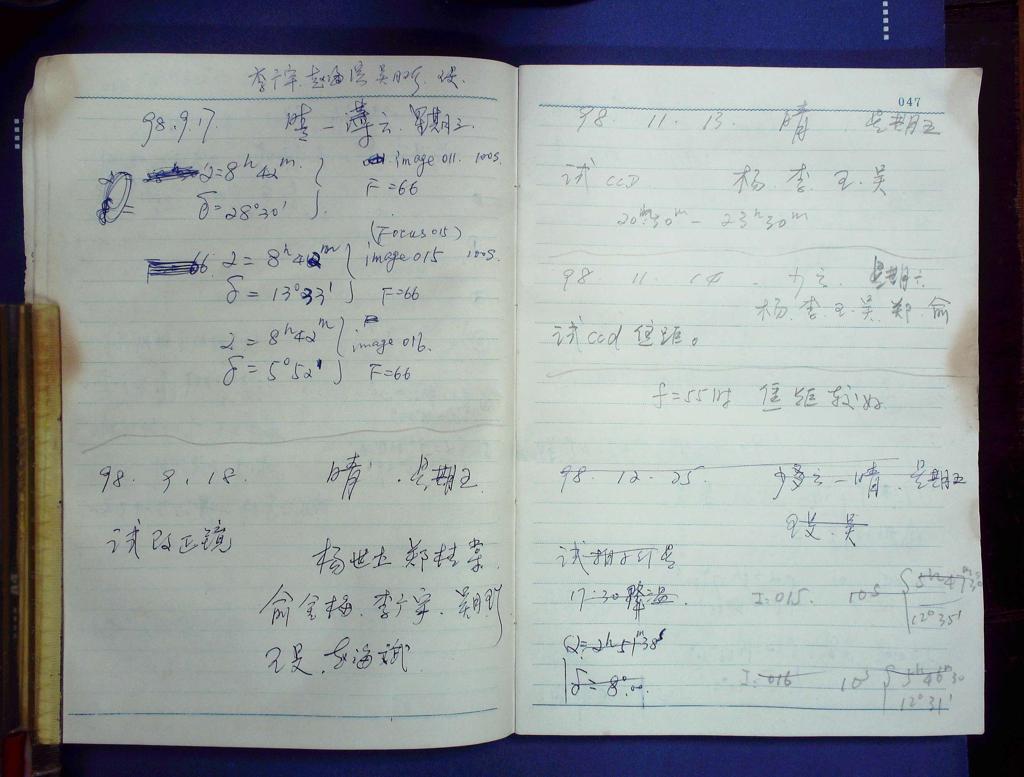 李广宇 赵海斌 吴月珍
98.9.17 晴-薄云 星期三
α=8h42m image 011. 100s.
δ=28°30′ F=66
(Focus015)
66 α=8h42m image 015 100s.
δ=13°33′ F=66
α=8h42m image 016.
δ=5°52′ F=66
98. 9. 18. 晴 星期五
试改正镜
杨世杰 郑桂棠
俞金梅. 李广宇. 吴月珍
赵海斌
047
98 11. 13 晴 星期五
试 CCD 杨 李 王 吴
20h30m - 23h30m
98 11. 14 少云 星期六
杨 李 王 吴 郑 俞
试ccd 焦距。
f=55时 焦距较好
98. 12. 25. 少云-晴 星期五
吴
17:30 I:015. 10s 5h47m30
12°35′
α=2h51m38s
δ=8°00 I:016 10s 5h46m30
12°31′